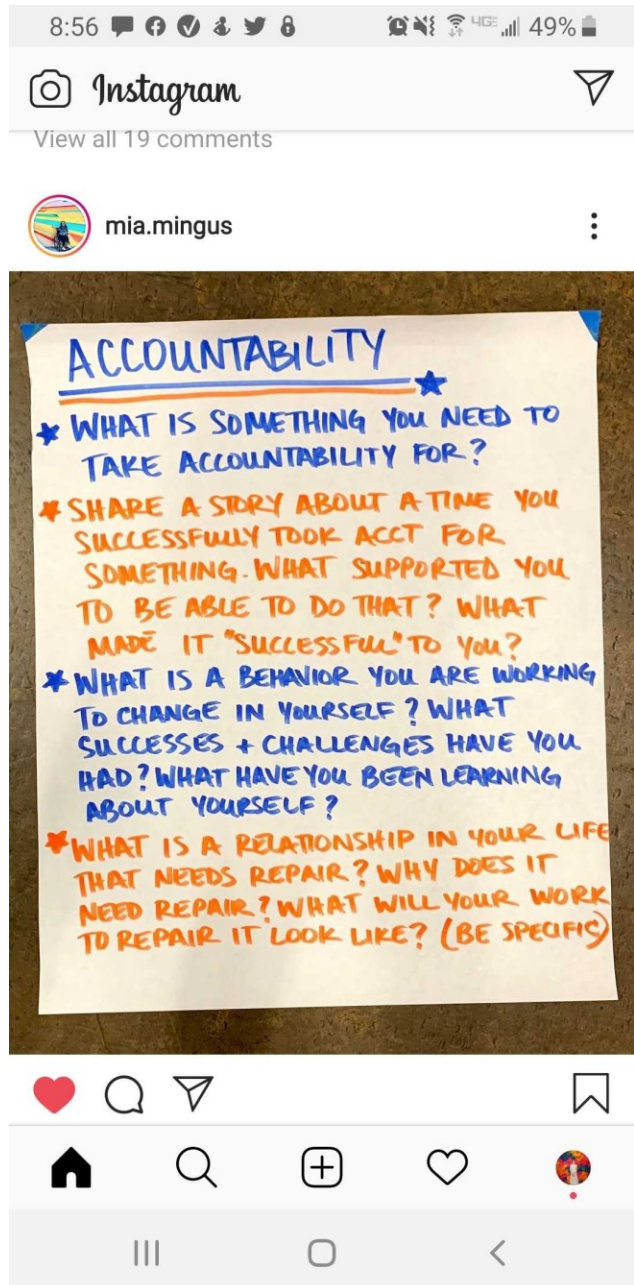 8:56 49%
Instagram
View all 19 comments
mia.mingus
ACCOUNTABILITY
WHAT IS SOMETHING YOU NEED TO
TAKE ACCOUNTABILITY FOR?
SHARE A STORY ABOUT A TIME YOU
SUCCESSFULLY TOOK ACCT FOR
SOMETHING. WHAT SUPPORTED YOU
TO BE ABLE TO DO THAT? WHAT
MADE IT "SUCCESSFUL" TO YOU?
WHAT IS A BEHAVIOR YOU ARE WORKING
TO CHANGE IN YOURSELF? WHAT
SUCCESSES + CHALLENGES HAVE YOU
HAD? WHAT HAVE YOU BEEN LEARNING
ABOUT YOURSELF?
WHAT IS A RELATIONSHIP IN YOUR LIFE
THAT NEEDS REPAIR? WHY DOES IT
NEED REPAIR? WHAT WILL YOUR WORK
TO REPAIR IT LOOK LIKE? (BE SPECIFIC)